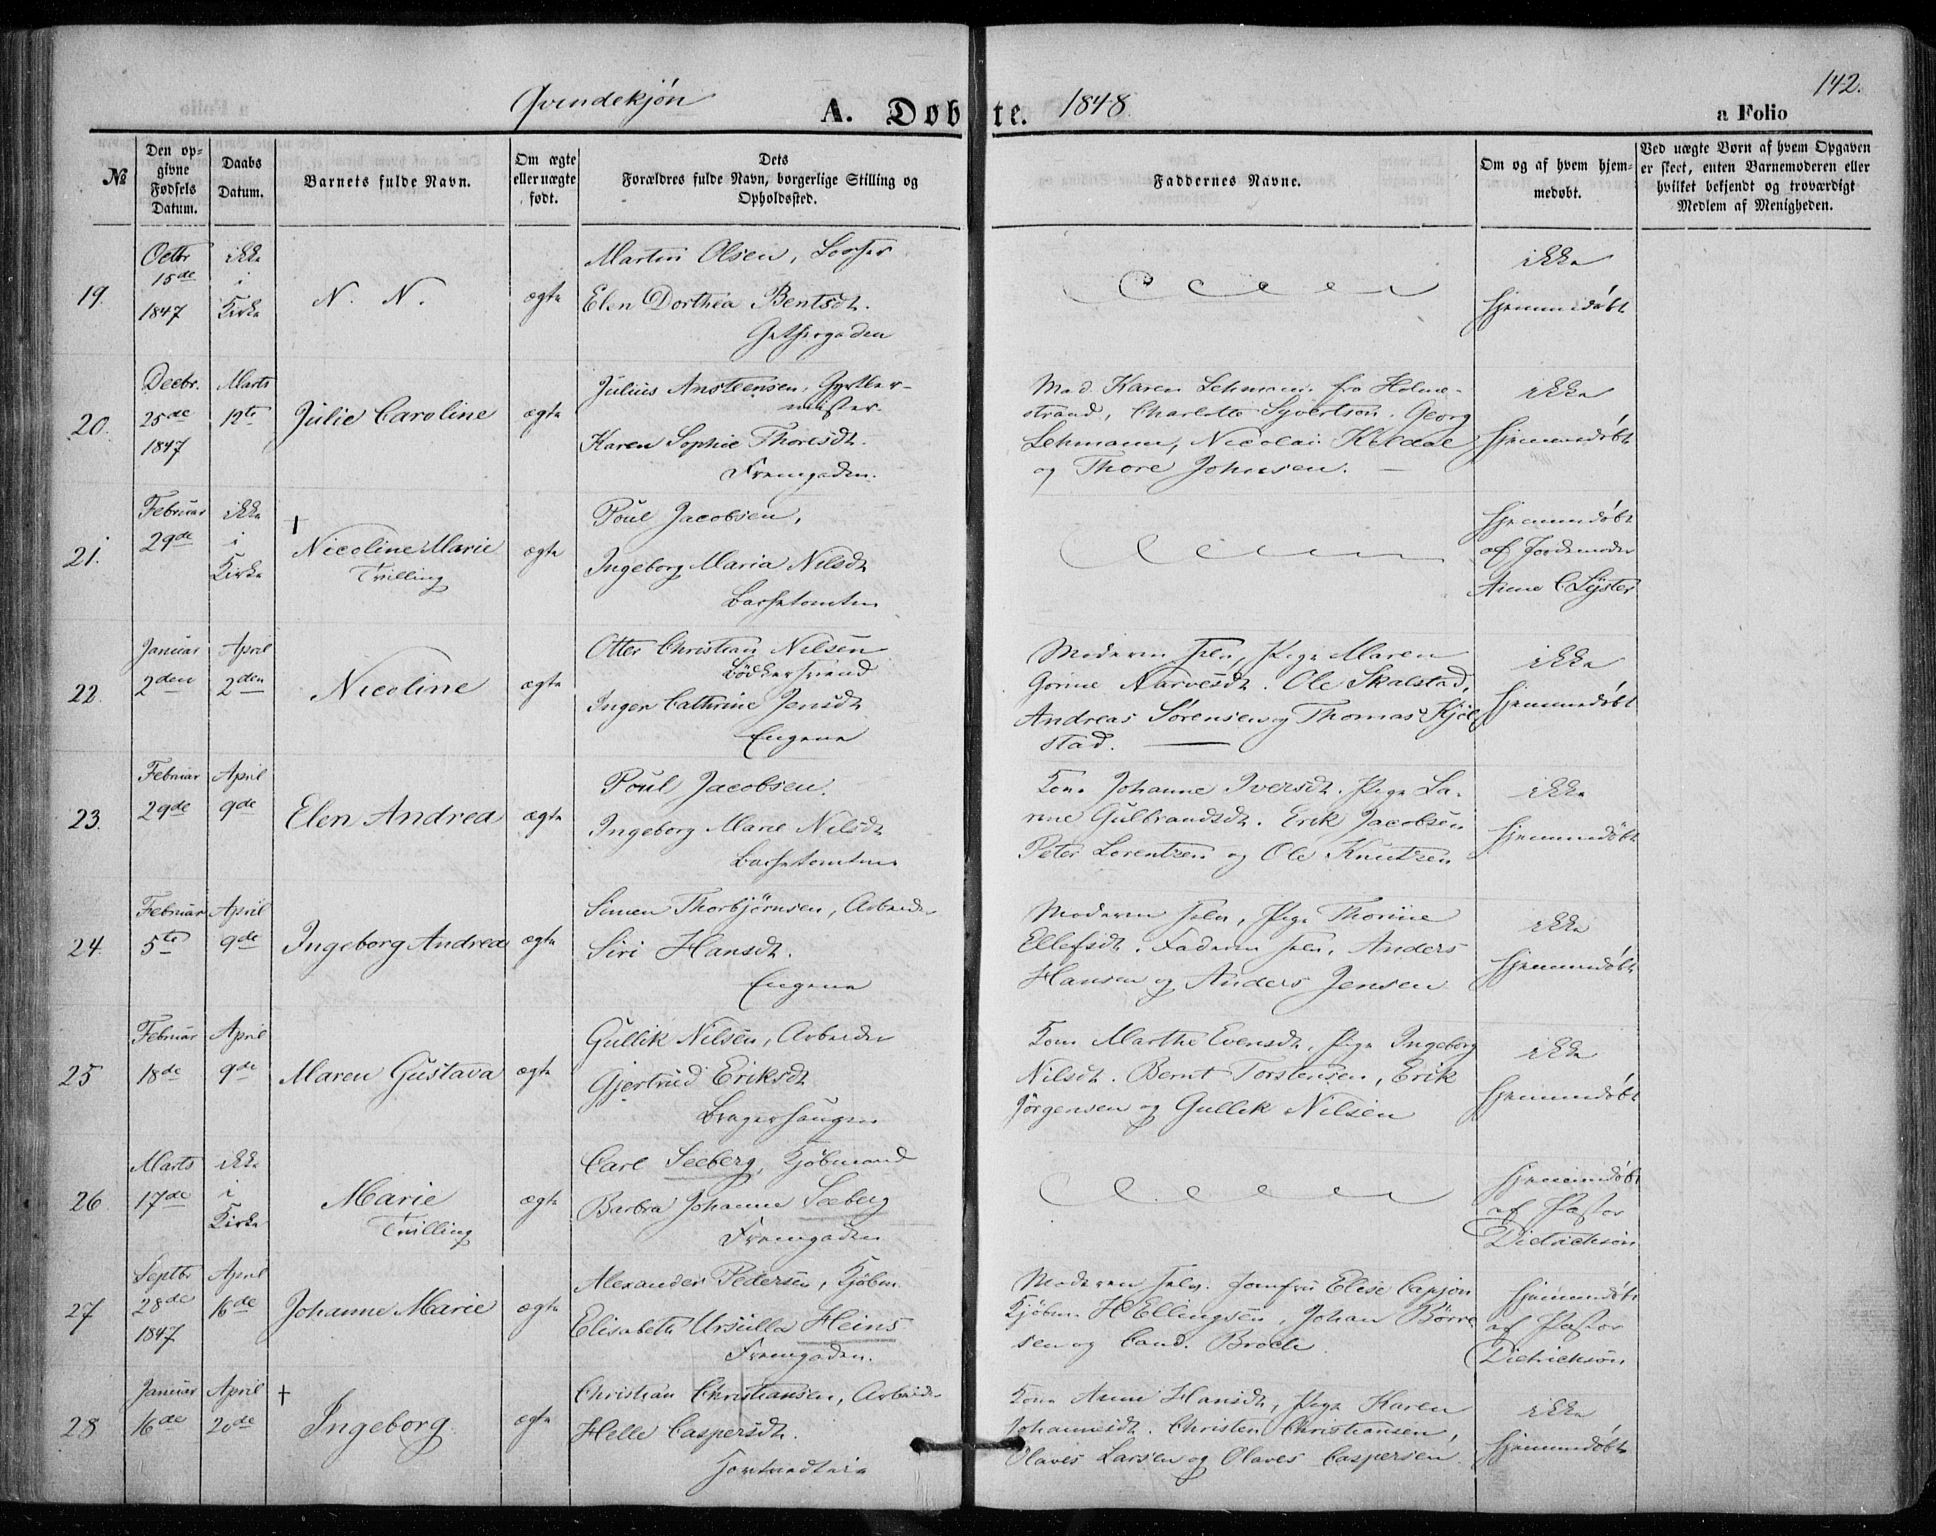 Qvindekjøn A. Døbte. 1848. a Folio 142.
№
Den opgivne Fødsels Datum.
Daabs Datum.
Barnets fulde Navn.
Om ægte eller uægte født.
Dets Forældres fulde Navn, borgerlige Stilling og Opholdssted.
Faddernes Navne.
Om og af hvem hjemmedøbt.
Ved uægte Børn af hvem Opgaven er skeet, enten Barnemoderen eller hvilket bekjendt og troværdigt Medlem af Menigheden.
19.
Octbr 15de 1847
ikke i Kirke
N. N.
ægte
Martin Olsen,
Elen Dorthea Bentsdt.
ikke
hjemmedøbt
20.
Decbr. 25de 1847
Marts 12te
Julie Caroline
ægte
Julius Ansteensen, Gjørtler-
mester.
Karen Sophie Thoresdt.
Fremgaden.
Mad Karen Lehmann fra Holme-
strand, Charlotte Syvertson. Georg
Lehmann, Nicolai Keldal
og Thore Johnsen.
ikke
hjemmedøbt
21.
Februar 29de
ikke i Kirke
†
Nicoline Marie
Tvilling
ægte
Poul Jacobsen,
Ingeborg Maria Nilsdt
hjemmedøbt
af Jordemoder
Anne C Lyster
22.
Januar 2den
April 2den
Nicoline
ægte
Otter Christian Nilsen
Bødkersvend
Inger Cathrine Jensdt
Engene
Moderen selv, Pige Maren
Gorine Narvesdt. Ole Skalstad,
Andreas Sørensen og Thomas Kjøl
stad.
ikke
hjemmedøbt
23.
Februar 29de
April 9de
Elen Andrea
ægte
Poul Jacobsen.
Ingeborg Marie Nilsdt
Kone Johanne Iversdt. Pige La-
rine Gulbrandsdt. Erik Jacobsen
Peter Lorentzen og Ole Knutzen
ikke
hjemmedøbt
24.
Februar 5te
April 9de
Ingeborg Andrea
ægte
Simen Thorbjørnsen, Arbeider
Siri Hansdt.
Engene
Moderen selv, Pige Thorine
Ellefsdt. Faderen selv, Anders
Hansen og Anders Jensen
ikke
hjemmedøbt
25
Februar 18de
April 9de
Maren Gustava
ægte
Gullik Nilsen, Arbeider
Gjertrud Eriksdt
Bragerhaugen
Kone Marthe Evensdt, Pige Ingeborg
Nilsdt. Bernt Torstensen, Erik
Jørgensen og Gullik Nilsen
ikke
hjemmedøbt
26
Marts 17de
ikke i Kirke
Marie
Tvilling
ægte
Carl Seeberg, Kjøbmand
Barbra Johanne Seeberg
Fremgaden
hjemmedøbt
af Pastor
Dietrichson
27
Septbr 28de 1847
April 16de
Johanne Marie
ægte
Alexander Pedersen, Kjøbm.
Elisabeth Ursulla Heins
Fremgaden.
Moderen selv. Jomfru Elise Capjon
Kjøbm. H Ellingsen, Johan Børre
sen og Cand. Broch
hjemmedøbt
af Pastor
Dietrichson
28
Januar 16de
April 20de
†
Ingeborg
ægte
Christian Christiansen, Arbeider
Helle Caspersdt.
Kone Anne Hansdt, Pige Karen
Johannesdt. Christen Christiansen,
Olaves Larsen og Olaves Caspersen
ikke
hjemmedøbt